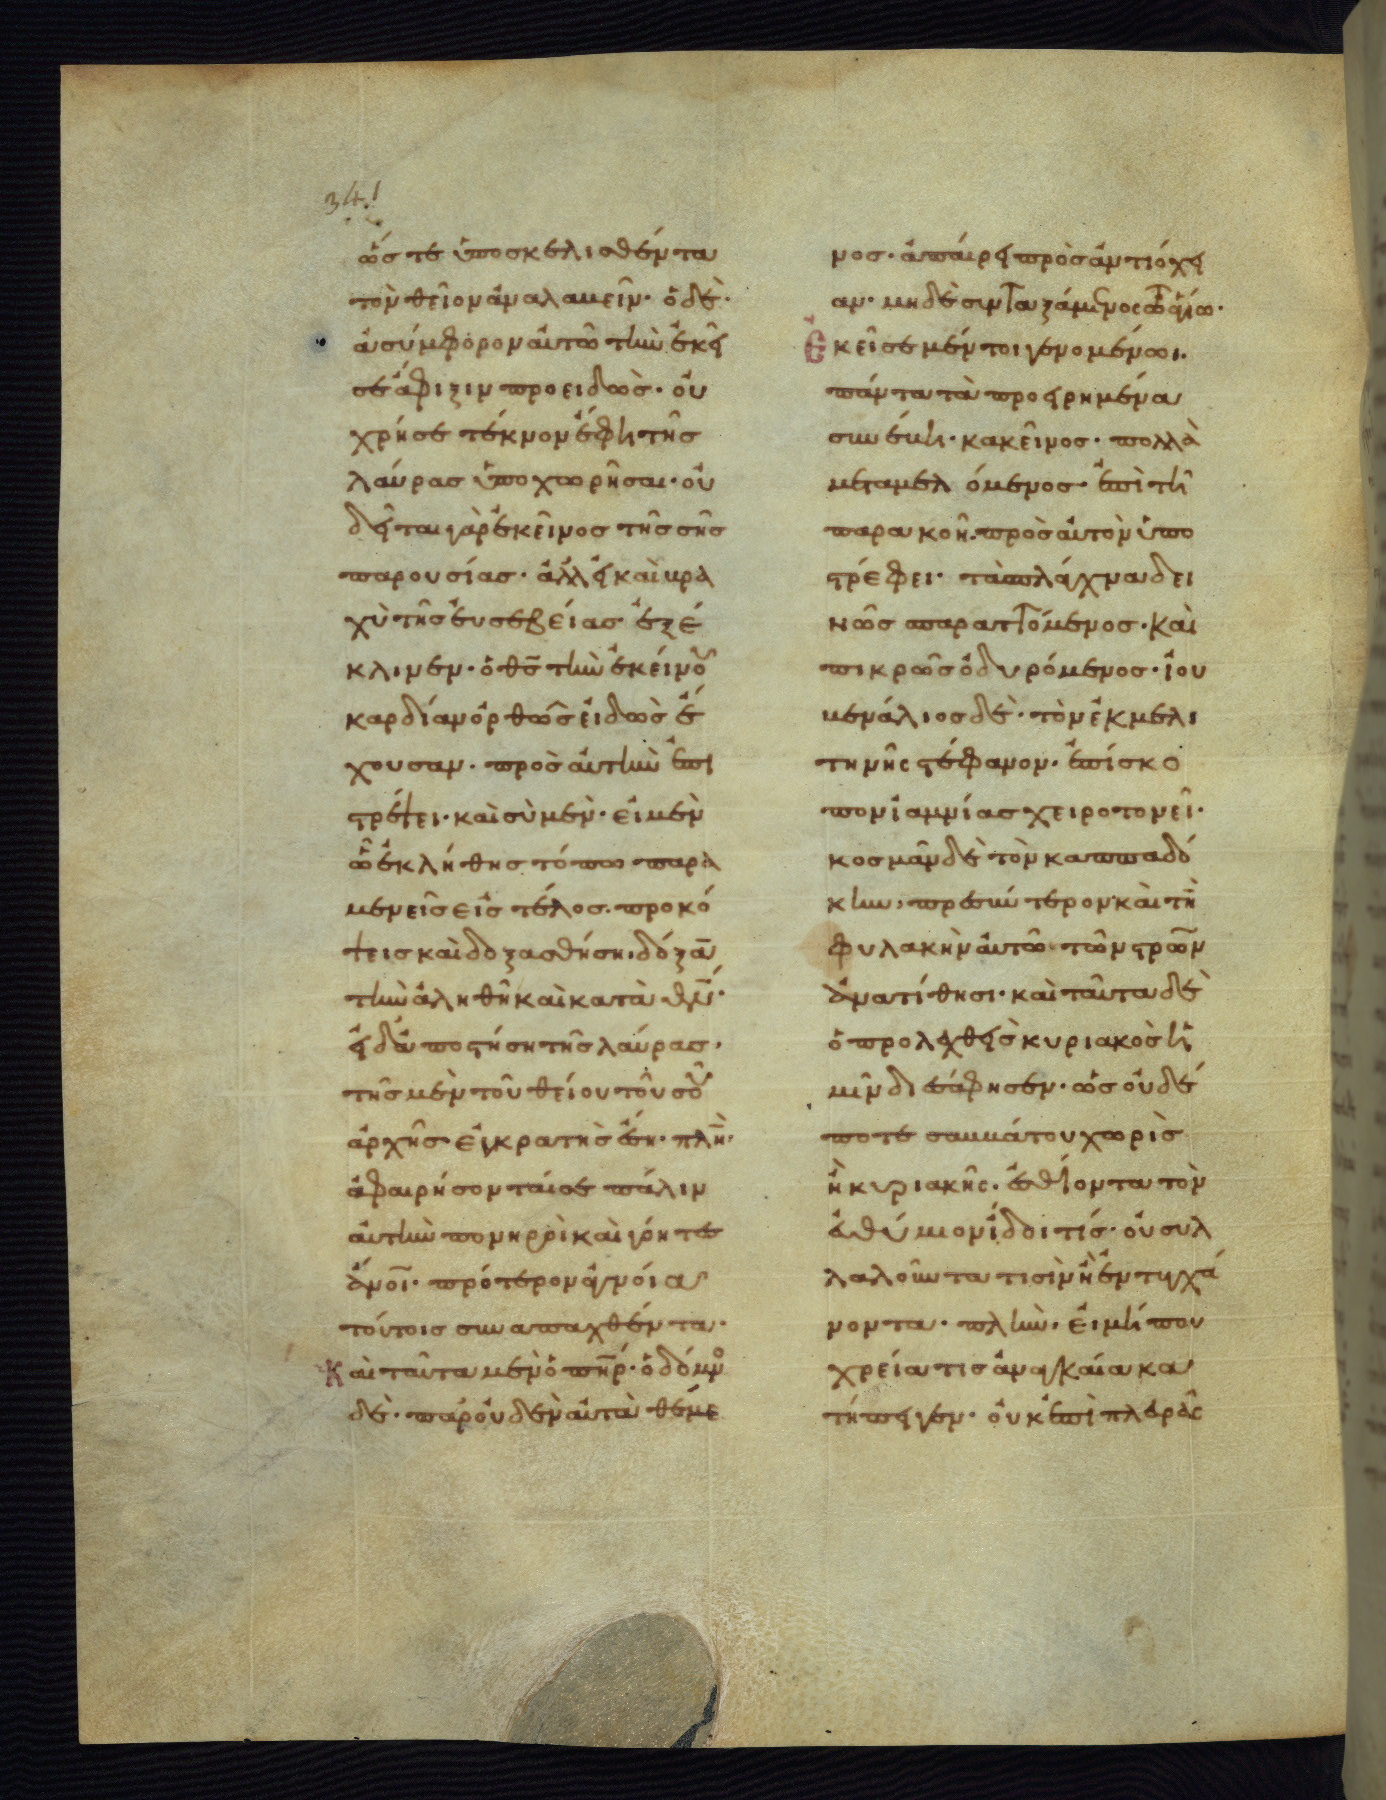 341
ὥστε ὑποσκελισθέντα
τὸν θεῖον ἀναλαβεῖν· ὁ δὲ·
ἀσύμφορον αὐτῶ τὴν ἐκεῖ
σε ἄφιξιν προειδὼς· οὐ
χρή σε τέκνον ἔφη τῆς
λαύρας ὑποχωρῆσαι· οὐ
δεῖται γὰρ ἐκεῖνος τῆς σῆς
παρουσίας· ἀλλ' εἰ καὶ βρα
χὺ τῆς εὐσεβείας ἐξέ
κλινεν· ὁ θς τὴν ἐκείνου
καρδίαν ὀρθῶς εἰδὼς ἔ
χουσαν· πρὸς αὐτὴν ἐπι
στρέψει· καὶ σὺ μὲν· εἰ μὲν
ὧ ἐκλήθης τόπω παρα
μενεῖς εἰς τέλος· προκό
ψεις καὶ δοξασθήση· δόξαν
τὴν ἀληθῆ καὶ κατὰ θν·
εἰ δ' ἀποστήση τῆς λαύρας·
τῆς μὲν τοῦ θείου τοῦ σοῦ
ἀρχῆς ἐγκρατὴς ἔση· πλὴν·
ἀφαιρήσονταί σε πάλιν
αὐτὴν πονηροὶ καὶ γόητες
ἄνοι· πρότερον εὐνοία
τούτοις συναπαχθέντα·
Καὶ ταῦτα μὲν ὁ πηρ· ὁ δόμνος
δὲ· παρ' οὐδὲν αὐτὰ θέμε
νος· ἀπαίρει πρὸς ἀντιόχει
αν· μηδὲ συνταξάμενος τῶ ἁγίω·
Ἐκεῖσε μέντοι γενομένωι·
πάντα τὰ προειρημένα
συνέβη· κακεῖνος· πολλὰ
μεταμελόμενος ἐπὶ τῆ
παρακοῆ· πρὸς αὐτὸν ὑπο
στρέφει· τὰ σπλάγχνα δει
νῶς σπαραττόμενος· καὶ
πικρῶς ὀδυρόμενος· ἰου
βενάλιος δὲ· τὸν ἐκ μελι
τηνῆς στέφανον· ἐπίσκο
πον ἰαμνίας χειροτονεῖ·
κοσμᾶν δὲ τὸν καππαδό
κην· πρεσβύτερον καὶ τὴν
φυλακὴν αὐτῶ τῶν στρῶν
ἀνατίθησι· καὶ ταῦτα δὲ
ὁ προλεχθεὶς κυριακὸς ἡ
μῖν διεσάφησεν· ὡς οὐδέ
ποτε σαββάτου χωρὶς
ἢ κυριακῆς· ἐσθίοντα τὸν
εὐθύμιον ἴδοι τίς· οὐ συλ
λαλοῦντα τισὶν ἢ ἐντυγχά
νοντα· πλὴν· εἰ μή που
χρεία τις ἀναγκαία κα
τήπειγεν· οὐκ ἐπὶ πλευρᾶς